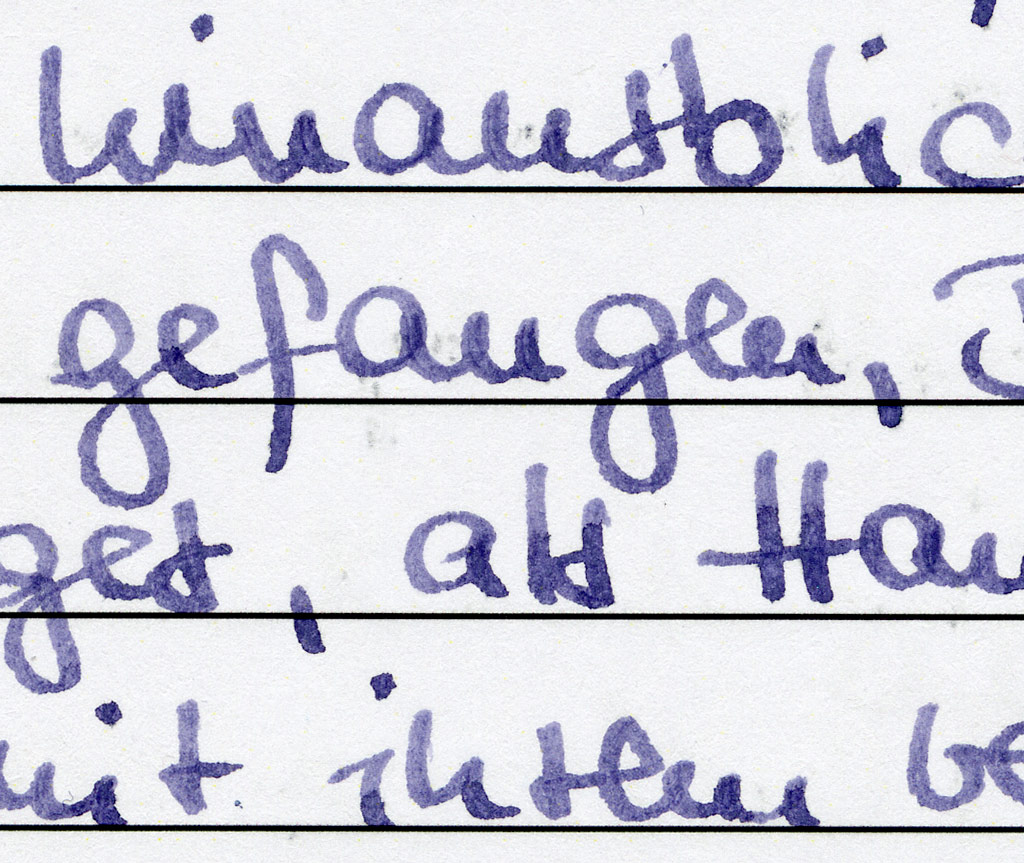 hinausblic
gefangen,
als Han
mit ihrem be